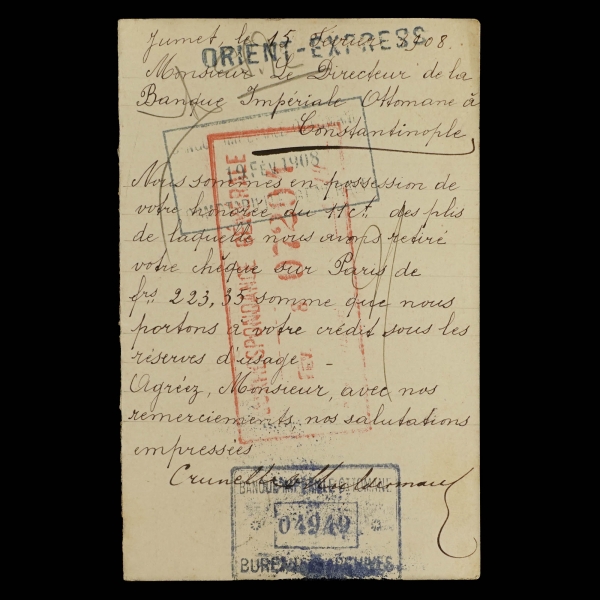 Jumet, le 15 Février 1908.
ORIENT-EXPRESS
Monsieur Le Directeur de la
Banque Impériale Ottomane à
Constantinople
19 FEV 1908
Nous sommes en possession de
votre honorée du 11 ct. des plis
de laquelle nous avons retiré
votre chèque sur Paris de
frs 223,35 somme que nous
portons à votre crédit sous les
réserves d'usage. -
Agréez, Monsieur, avec nos
remerciements, nos salutations
empressées
CORRESPONDANCE GENERALE
07204
BANQUE IMPERIALE OTTOMANE
04949
BUREAU ARCHIVES